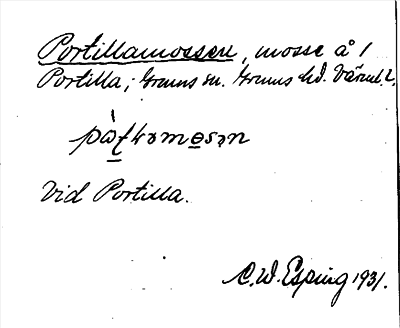 Portillamossen, mosse å 1
Portilla; Grums sn. Grums hd. Värml. l.
Vid Portilla.
C.W. Esping 1931.